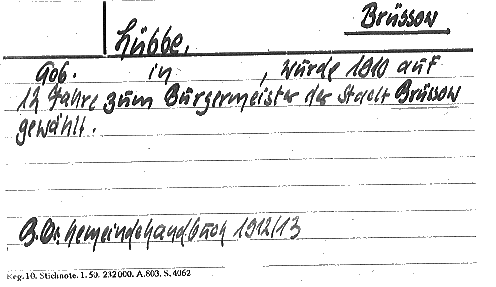 Brüssow
Lübbe,
Geb. in , wurde 1910 auf
12 Jahre zum Bürgermeister der Stadt Brüssow
gewählt.
B.O. Gemeindehandbuch 1912/13
Reg. 10. Stichnote. 1. 50. 232000. A. 803. S. 4062